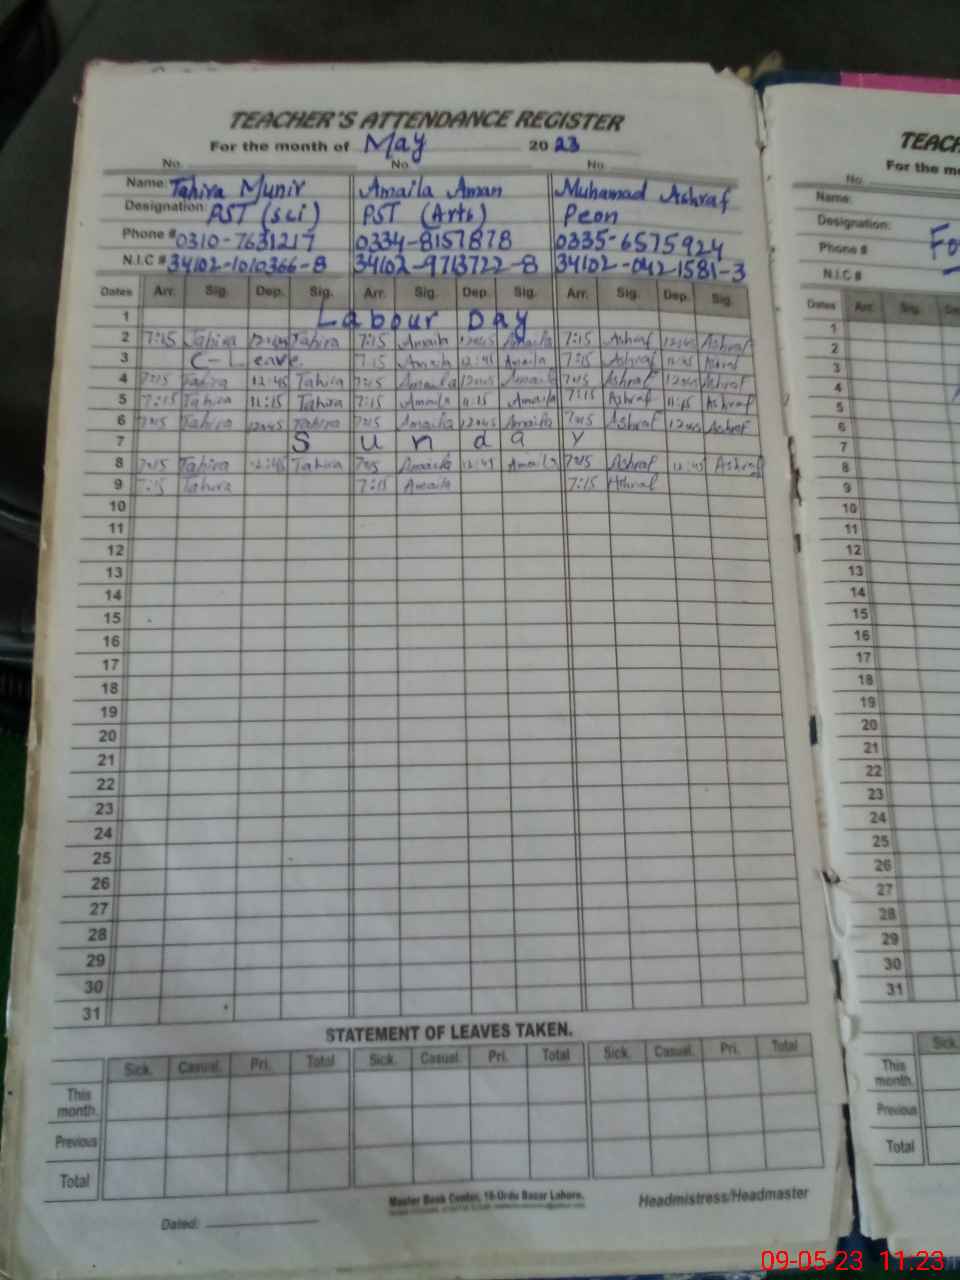 TEACHER'S ATTENDANCE REGISTER
For the month of May 2023
No. No. No.
Name: Tahira Munir Amaila Aman Muhamad Ashraf
Designation: PST (sci) PST (Arts) Peon
Phone # 0310-7631217 0334-8157878 0335-6575924
N.I.C # 34102-1010366-8 34102-9713722-8 34102-0421581-3
Dates Arr. Sig. Dep. Sig. Arr. Sig. Dep. Sig. Arr. Sig. Dep. Sig.
1 Labour Day
2 7:15 Tahira 12:45 Tahira 7:15 Amaila 12:45 Amaila 7:15 Ashraf 12:45 Ashraf
3 C-Leave 7:15 Amaila 12:45 Amaila 7:15 Ashraf 12:45 Ashraf
4 7:15 Tahira 12:45 Tahira 7:15 Amaila 12:45 Amaila 7:15 Ashraf 12:45 Ashraf
5 7:15 Tahira 11:15 Tahira 7:15 Amaila 11:15 Amaila 7:15 Ashraf 11:15 Ashraf
6 7:15 Tahira 12:45 Tahira 7:15 Amaila 12:45 Amaila 7:15 Ashraf 12:45 Ashraf
7 Sunday
8 7:15 Tahira 12:45 Tahira 7:15 Amaila 12:45 Amaila 7:15 Ashraf 12:45 Ashraf
9 7:15 Tahira 7:15 Amaila 7:15 Ashraf
10
11
12
13
14
15
16
17
18
19
20
21
22
23
24
25
26
27
28
29
30
31
STATEMENT OF LEAVES TAKEN.
Sick. Casual. Pri. Total Sick. Casual. Pri. Total Sick. Casual. Pri. Total
This month.
Previous
Total
Master Book Center, 16-Urdu Bazar Lahore.
Dated: Headmistress/Headmaster
For the
No.
Name:
Designation:
Phone #
N.I.C #
Dates Arr. Sig.
1
2
3
4
5
6
7
8
9
10
11
12
13
14
15
16
17
18
19
20
21
22
23
24
25
26
27
28
29
30
31
Sick.
This month.
Previous
Total
09-05-23 11:23